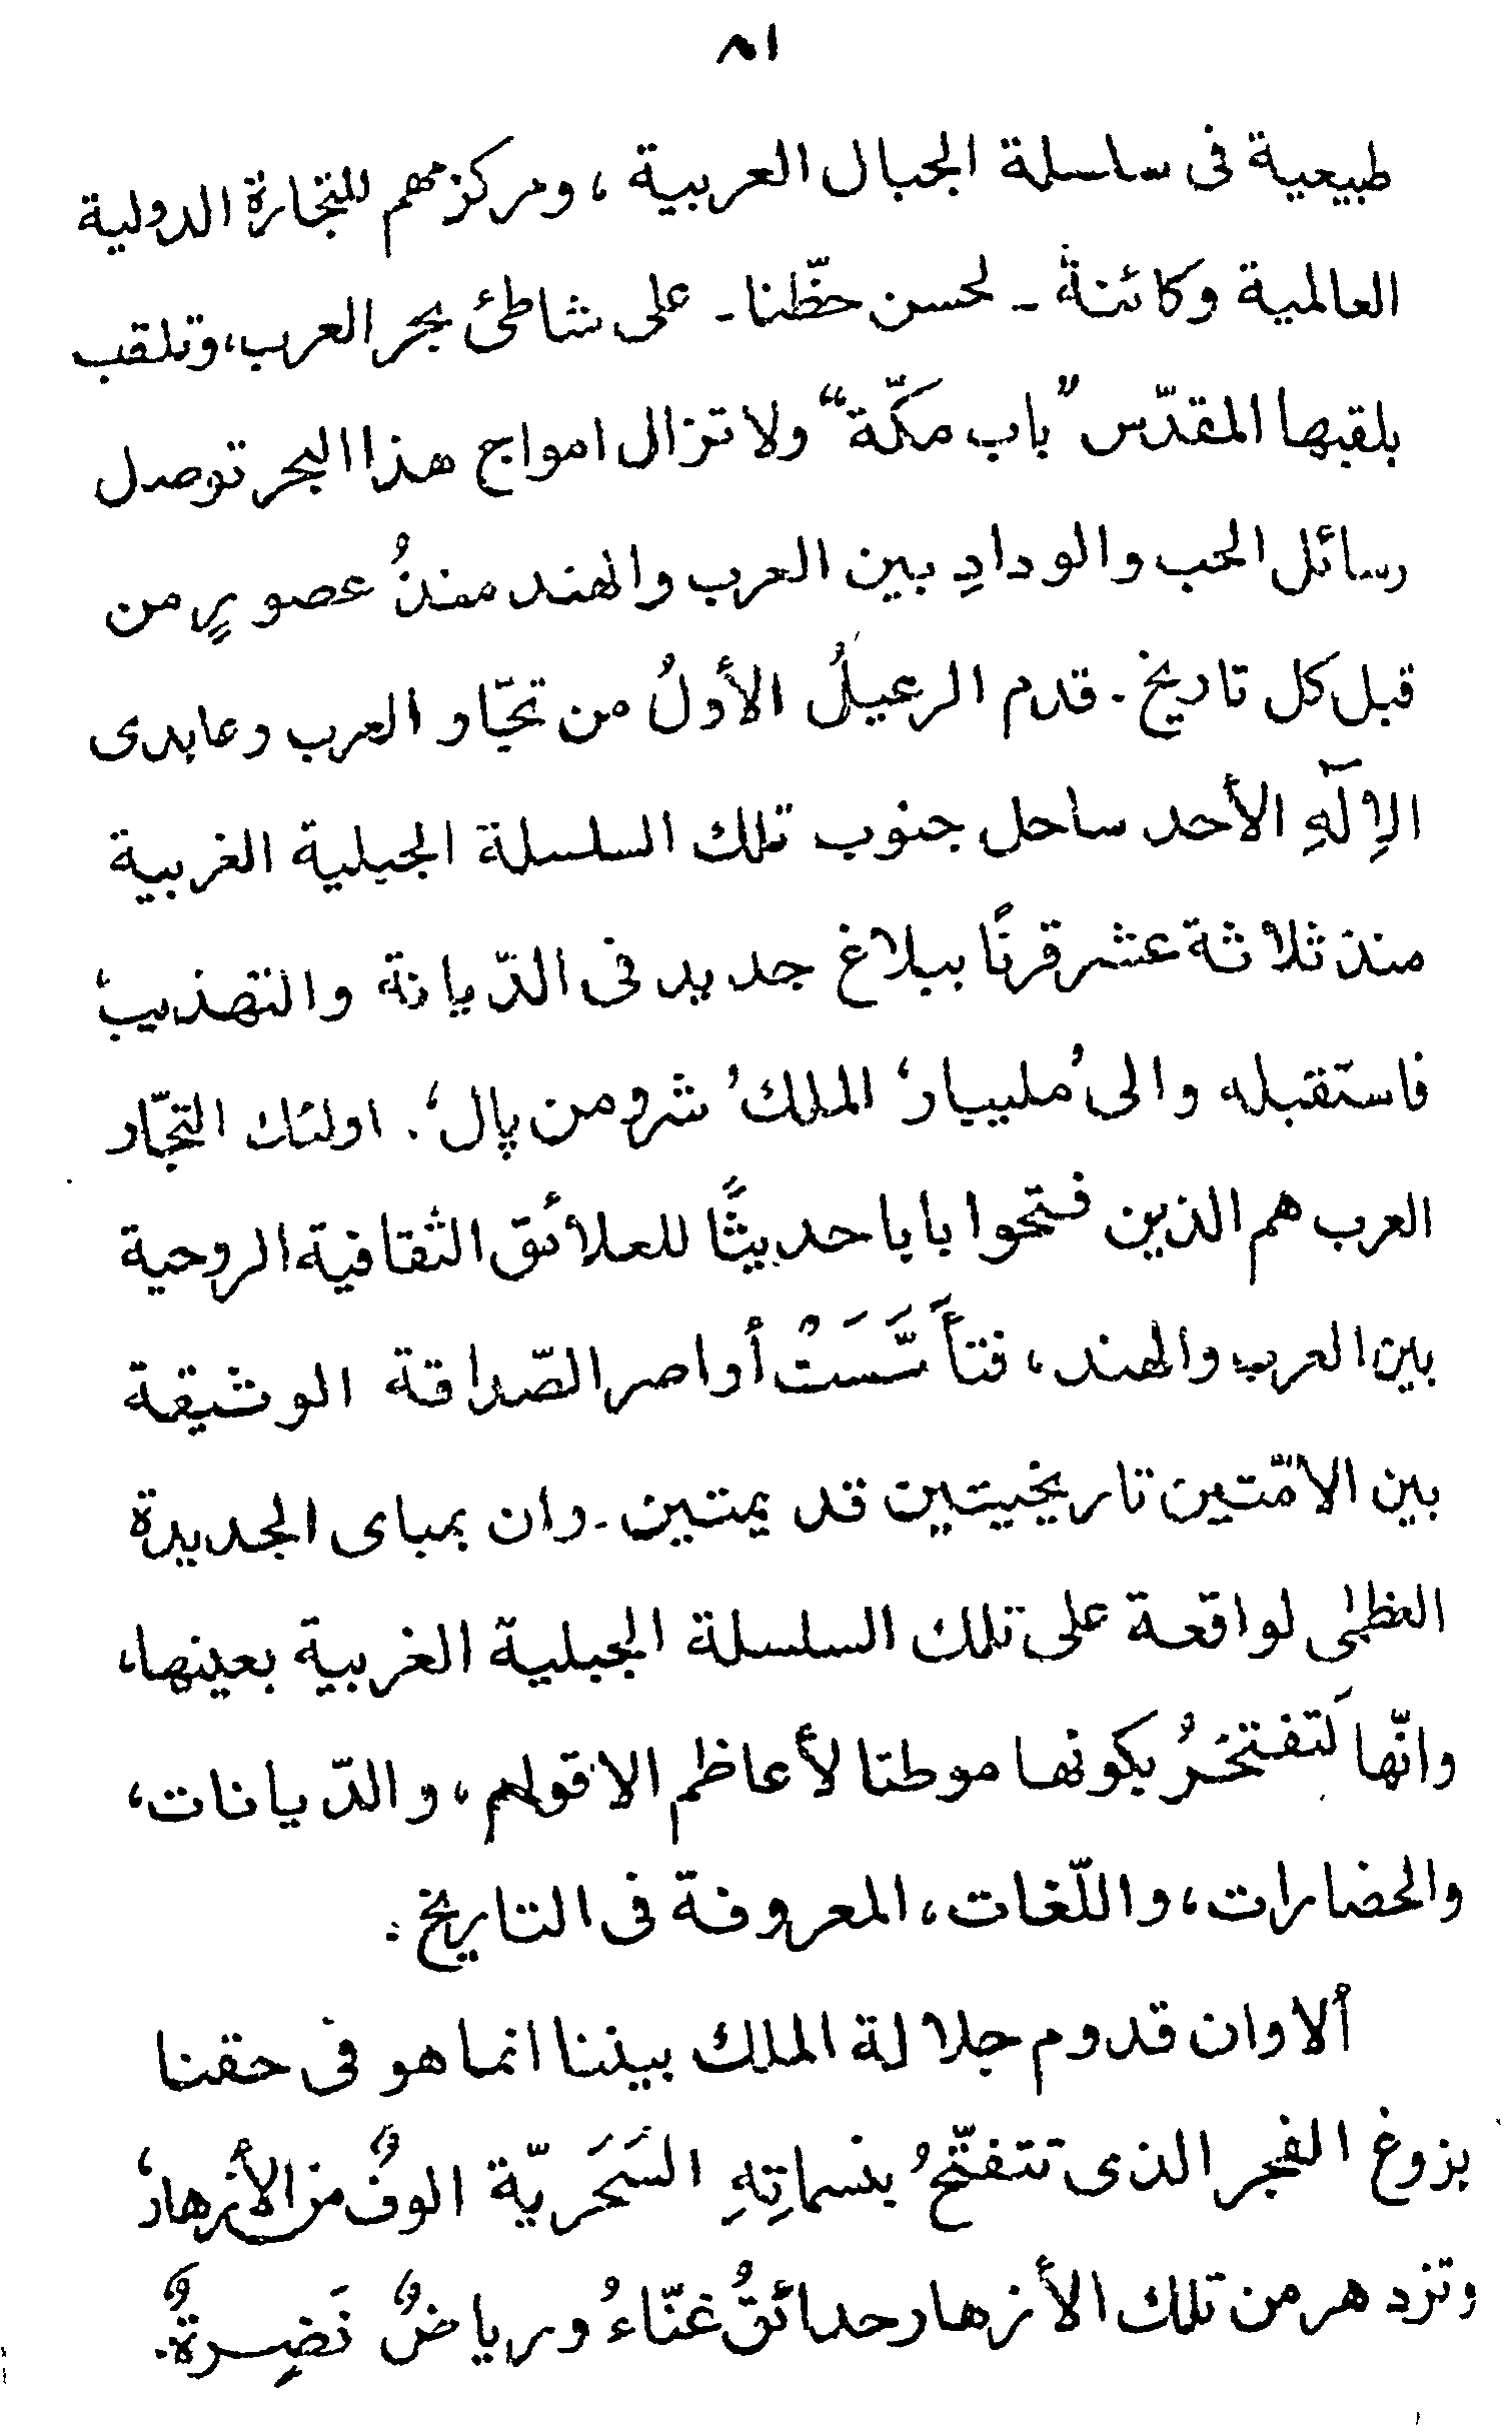 ٨١
طبيعية فى سلسلة الجبال العربية ، ومركز مهم للتجارة الدولية
العالمية وكائنة ـ لحسن حظّنا ـ على شاطئ بحر العرب، وتلقب
بلقبها المقدّس "باب مكّة" ولا تزال امواج هذا البحر توصل
رسائل الحب والودادِ بين العرب والهند منذُ عصورٍ من
قبل كل تاريخ . قدم الرعيلُ الأولُ من تجّار العرب وعابدى
الإلٓهِ الأحد ساحل جنوب تلك السلسلة الجبلية الغربية
منذ ثلاثة عشر قرنًا ببلاغ جديد فى الدّيانة والتهذيب؛
فاستقبله والى ُمليبار؛ الملك ُ شرومن پال ؛ . اولئك التجّار
العرب هم الذين فتحوا بابا حديثًا للعلائق الثقافية الروحية
بين العرب والهند، فتأَسَّسَتْ أواصر الصّداقة الوثيقة
بين الامّتين تاريخيتين قديمتين ـ وان بمباى الجديدة
العظمى لواقعة على تلك السلسلة الجبلية الغربية بعينها،
وانّها لَتفتخرُ بكونها موطنا لأعاظم الاقوام ، والدّيانات،
والحضارات، واللّغات، المعروفة فى التاريخ :
ألا وان قدوم جلالة الملك بيننا انما هو فى حقنا
بزوغ الفجر الذى تتفتّحُ بنسماتِهِ السَحَريّة الوفٌ من الأزهار،
وتزدهر من تلك الأزهار حدائقُ غنّاءُ ورياضٌ نَضِرةٌ.